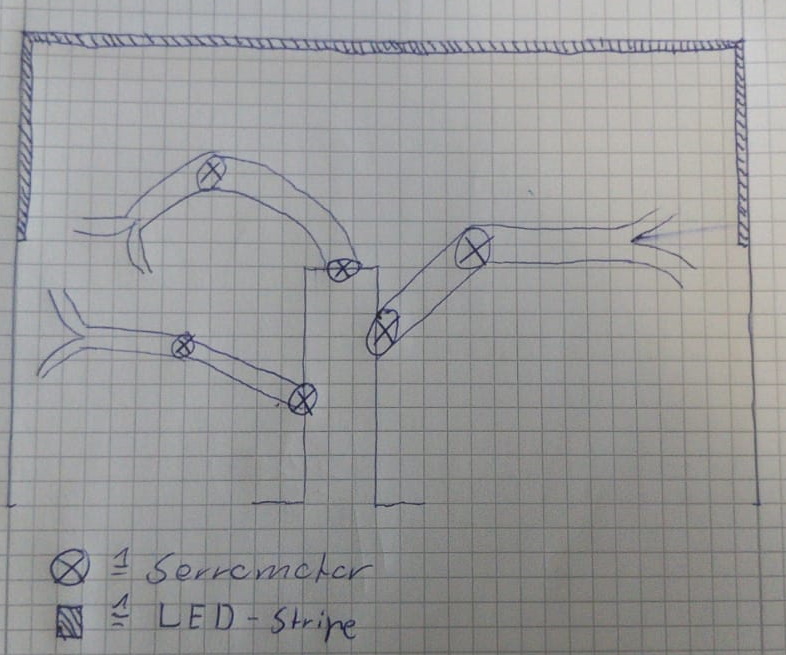 ≙ Servomotor
≙ LED-Stripe